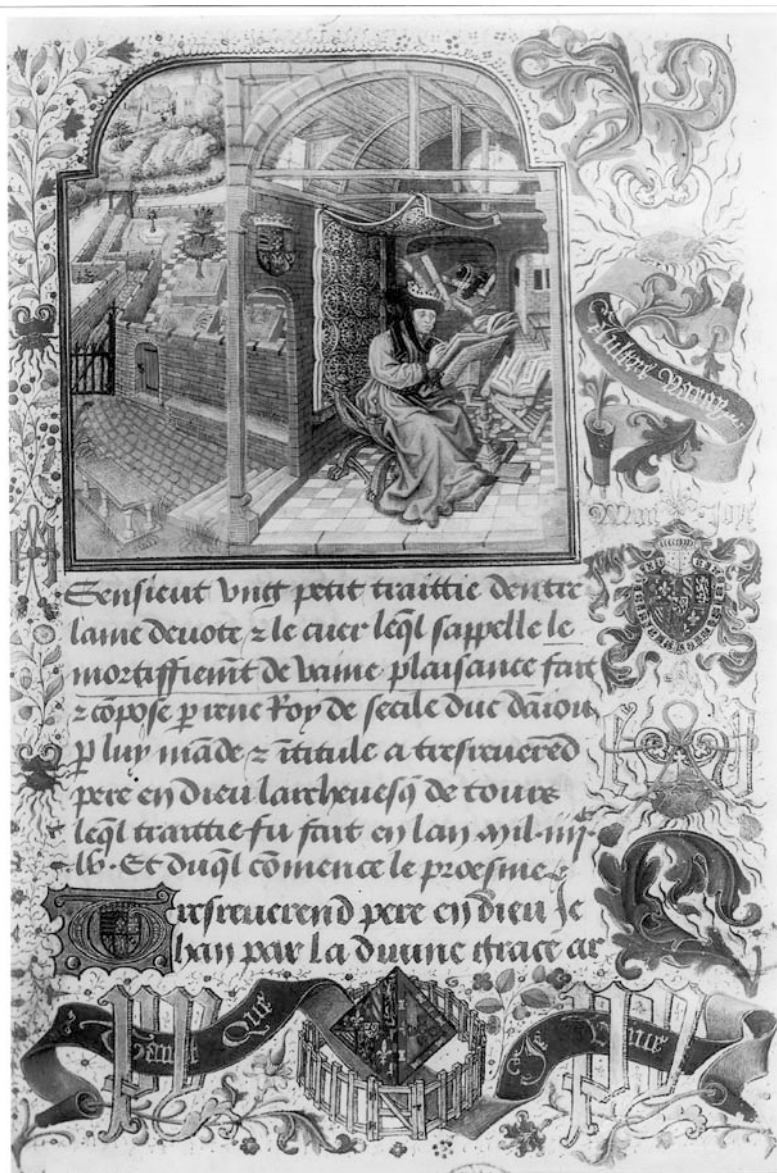 Aultre Naray
Mon Joye
Sensieut vng petit traittie dentre
lame deuote ⁊ le cuer leq̄l sappelle le
mortiffiem̄t de vaine plaisance fait
⁊ cōpose p̱ rene Roy de secile duc dāiou
p̱ luy māde ⁊ ītitule a tresreuerēd
pere en dieu larcheuesq̄ de tours
leq̄l traittie fu fait en lan mil·iiij·
·lv· Et duq̄l cōmence le proesme
Tresreuerend pere en dieu Je
han par la diuine grace ar
Tant Que Je Viue